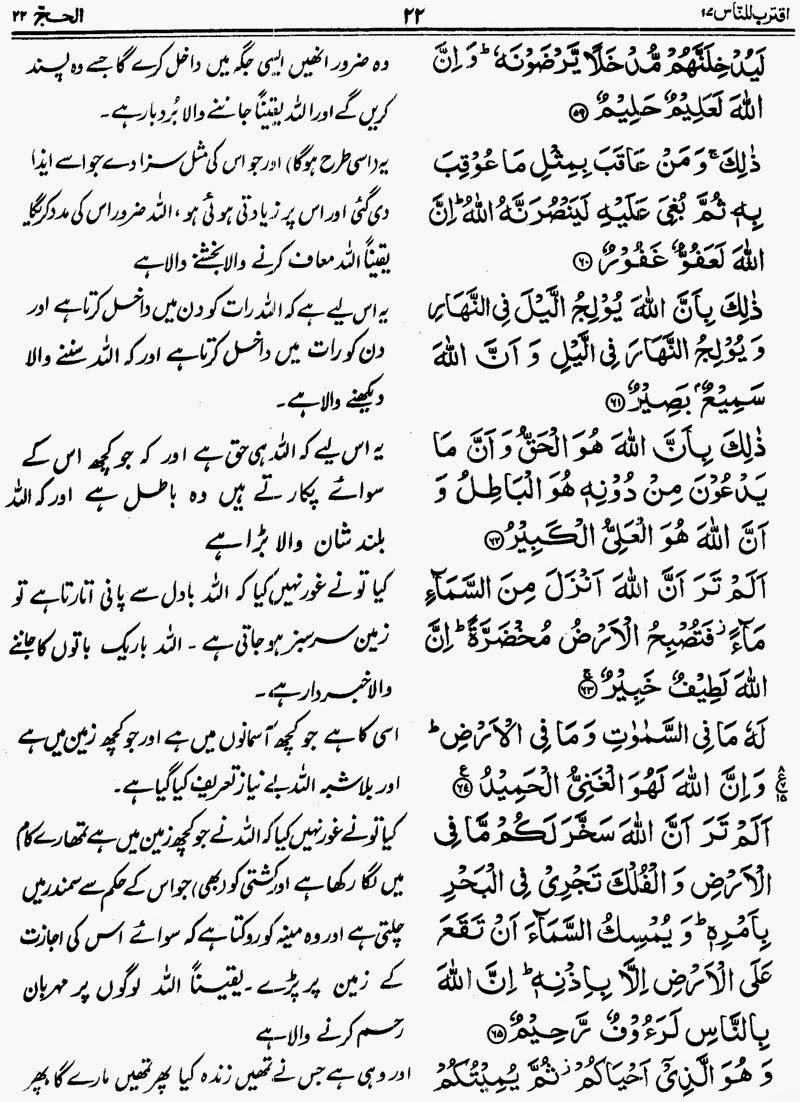 اقترب للناس ۱۷
۲۲
الحجّ ۲۲
لَيُدۡخِلَنَّهُمۡ مُّدۡخَلًا يَّرۡضَوۡنَهٗ ؕ وَ اِنَّ
اللّٰهَ لَعَلِيۡمٌ حَلِيۡمٌ ﴿۵۹﴾
ذٰلِكَ ۚ وَ مَنۡ عَاقَبَ بِمِثۡلِ مَا عُوۡقِبَ
بِهٖ ثُمَّ بُغِيَ عَلَيۡهِ لَيَنۡصُرَنَّهُ اللّٰهُ ؕ اِنَّ
اللّٰهَ لَعَفُوٌّ غَفُوۡرٌ ﴿۶۰﴾
ذٰلِكَ بِاَنَّ اللّٰهَ يُوۡلِجُ الَّيۡلَ فِي النَّهَارِ
وَ يُوۡلِجُ النَّهَارَ فِي الَّيۡلِ وَ اَنَّ اللّٰهَ
سَمِيۡعٌۢ بَصِيۡرٌ ﴿۶۱﴾
ذٰلِكَ بِاَنَّ اللّٰهَ هُوَ الۡحَقُّ وَ اَنَّ مَا
يَدۡعُوۡنَ مِنۡ دُوۡنِهٖ هُوَ الۡبَاطِلُ وَ
اَنَّ اللّٰهَ هُوَ الۡعَلِيُّ الۡكَبِيۡرُ ﴿۶۲﴾
اَلَمۡ تَرَ اَنَّ اللّٰهَ اَنۡزَلَ مِنَ السَّمَآءِ
مَآءً ۫ فَتُصۡبِحُ الۡاَرۡضُ مُخۡضَرَّةً ؕ اِنَّ
اللّٰهَ لَطِيۡفٌ خَبِيۡرٌ ﴿۶۳﴾
لَهٗ مَا فِي السَّمٰوٰتِ وَ مَا فِي الۡاَرۡضِ ؕ
وَ اِنَّ اللّٰهَ لَهُوَ الۡغَنِيُّ الۡحَمِيۡدُ ﴿۶۴﴾
اَلَمۡ تَرَ اَنَّ اللّٰهَ سَخَّرَ لَكُمۡ مَّا فِي
الۡاَرۡضِ وَ الۡفُلۡكَ تَجۡرِيۡ فِي الۡبَحۡرِ
بِاَمۡرِهٖ ؕ وَ يُمۡسِكُ السَّمَآءَ اَنۡ تَقَعَ
عَلَى الۡاَرۡضِ اِلَّا بِاِذۡنِهٖ ؕ اِنَّ اللّٰهَ
بِالنَّاسِ لَرَءُوۡفٌ رَّحِيۡمٌ ﴿۶۵﴾
وَ هُوَ الَّذِيۡۤ اَحۡيَاكُمۡ ۫ ثُمَّ يُمِيۡتُكُمۡ
وہ ضرور انھیں ایسی جگہ میں داخل کرے گا جسے وہ پسند
کریں گے اور اللہ یقیناً جاننے والا بُردبار ہے۔
یہ (اسی طرح ہوگا) اور جو اس کی مثل سزا دے جو اسے ایذا
دی گئی اور اس پر زیادتی ہوئی ہو ، اللہ ضرور اس کی مدد کریگا
یقیناً اللہ معاف کرنے والا بخشنے والا ہے
یہ اس لیے ہے کہ اللہ رات کو دن میں داخل کرتا ہے اور
دن کو رات میں داخل کرتا ہے اور کہ اللہ سننے والا
دیکھنے والا ہے۔
یہ اس لیے کہ اللہ ہی حق ہے اور کہ جو کچھ اس کے
سوائے پکارتے ہیں وہ باطل ہے اور کہ اللہ
بلند شان والا بڑا ہے
کیا تو نے غور نہیں کیا کہ اللہ بادل سے پانی اتارتا ہے تو
زمین سرسبز ہو جاتی ہے ۔ اللہ باریک باتوں کا جاننے
والا خبردار ہے۔
اسی کا ہے جو کچھ آسمانوں میں ہے اور جو کچھ زمین میں ہے
اور بلاشبہ اللہ بے نیاز تعریف کیا گیا ہے۔
کیا تو نے غور نہیں کیا کہ اللہ نے جو کچھ زمین میں ہے تمھارے کام
میں لگا رکھا ہے اور کشتی کو (بھی) جو اس کے حکم سے سمندر میں
چلتی ہے اور وہ مینہ کو روکتا ہے کہ سوائے اس کی اجازت
کے زمین پر پڑے ۔ یقیناً اللہ لوگوں پر مہربان
رحم کرنے والا ہے
اور وہی ہے جس نے تمھیں زندہ کیا پھر تمھیں مارے گا پھر